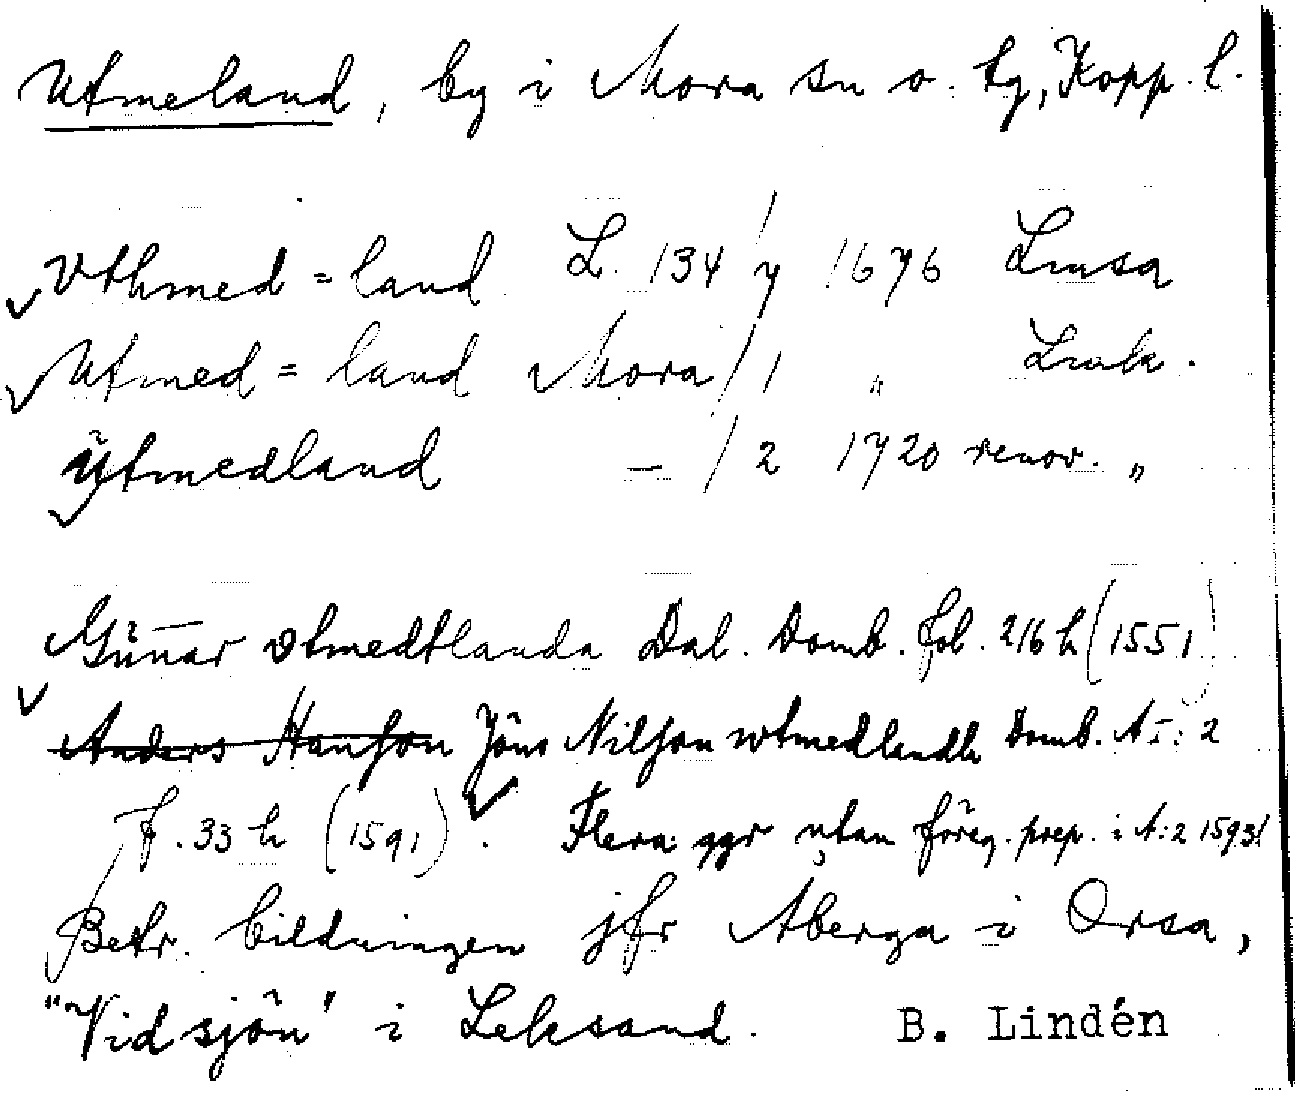 Utmeland, by i Mora sn o. tg, Kopp. l.
Vthmed=land L. 134/7 1676 Lmsa
Utmed=land Mora/1 „ Lmk.
Ÿtmedland — /2 1720 renov. „
Gunnar vtmedtlanda Dal. Domb. fol. 216 h (1551)
Anders Hanson Jöns Nilson wtmedlandh Domb. A I:2
f. 33 h (1591). Flera ggr utan föreg. prep. i A:2 1593!
Betr. bildningen jfr Åberga i Orsa,
"Vid sjön" i Leksand. B. Lindén